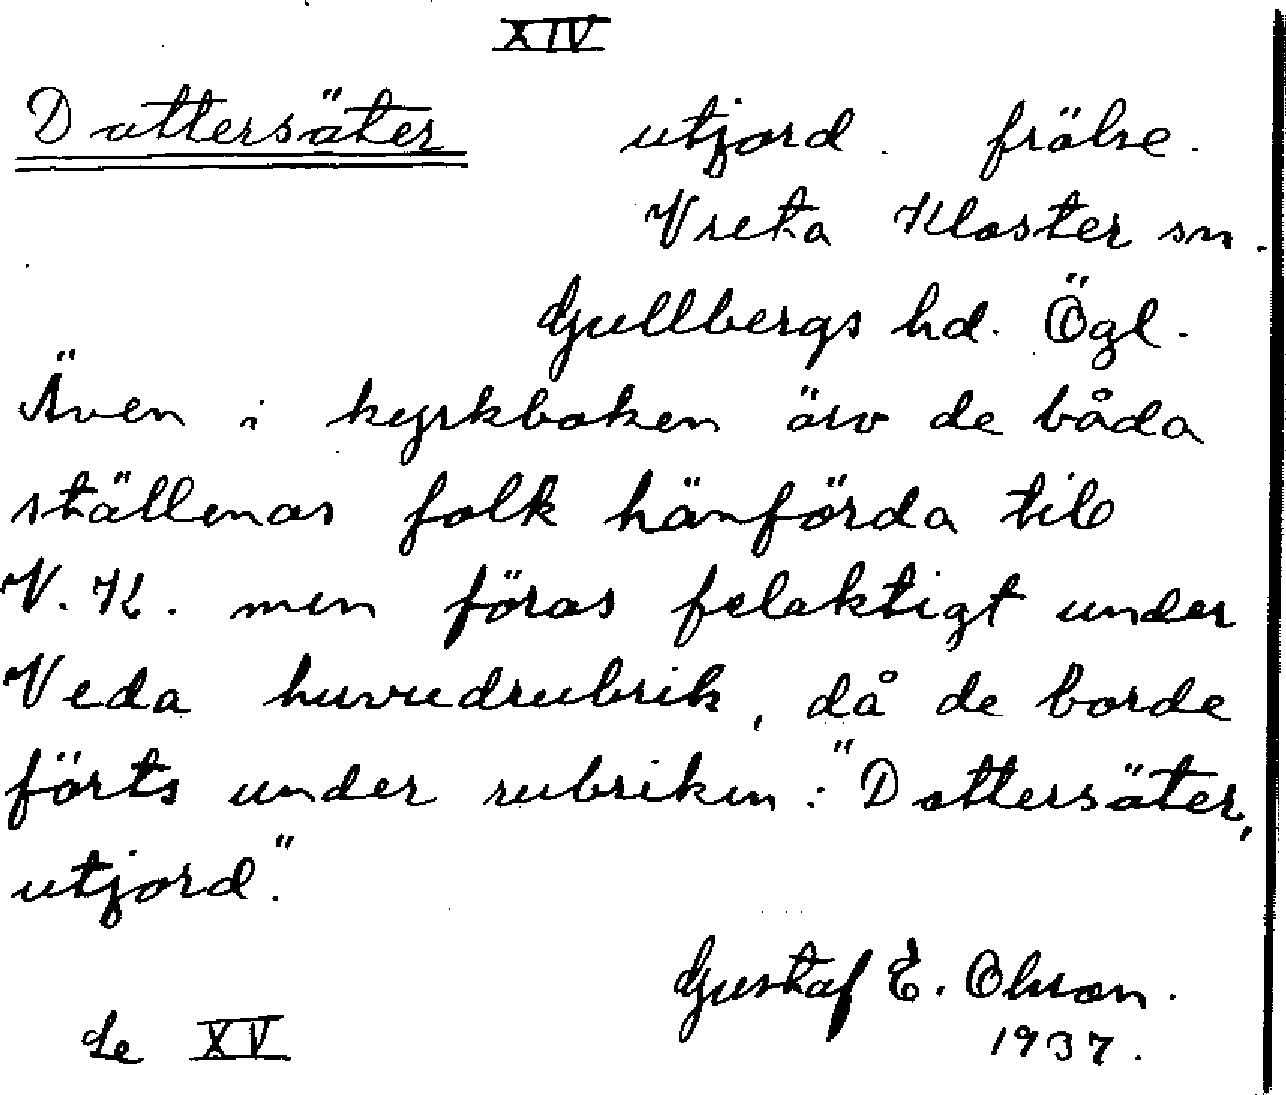 XIV
Dattersäter utjord. frälse.
Vreta Kloster sn.
Gullbergs hd. Ögl.
Även i kyrkboken äro de båda
ställenas folk hänförda till
V. K. men föras felaktigt under
Veda huvudrubrik, då de borde
förts under rubriken: "Dattersäter,
utjord."
Gustaf E. Olsson.
Se XV 1937.